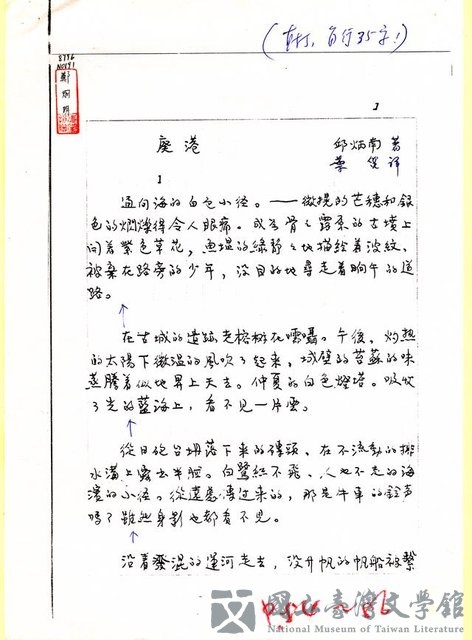 (直打，每行35字！)
廢港
邱炳南 著
葉 笛 譯
通向海的白色小徑。——微搖的芒穗和銀
色的燜燦得令人眼痛。成為骨之露柔的古墳上
向着紫色草花，魚塭的綠靜々地描绘着波紋、
被棄在路旁的少年，沒目的地尋走着晌午的道
路。
在古城的遺跡老榕樹在囁嚅。午後，灼熱
的太陽下微溫的風吹了起來，城壁的苔蘚的味
蒸騰着似地昇上天去。仲夏的白色燈塔。吸收
了光的藍海上，看不見一片雲。
從旧砲台坍落下來的磚頭、在不流動的排
水溝上露出半腔。白鷺絲不飛、人也不走的海
濱的小徑。從遠處傳過來的，那是牛車的鈴声
嗎？雖然身影也都看不見。
沿着發混的運河走去，沒升帆的帆船被繫
國立臺灣文學館
National Museum of Taiwan Literature